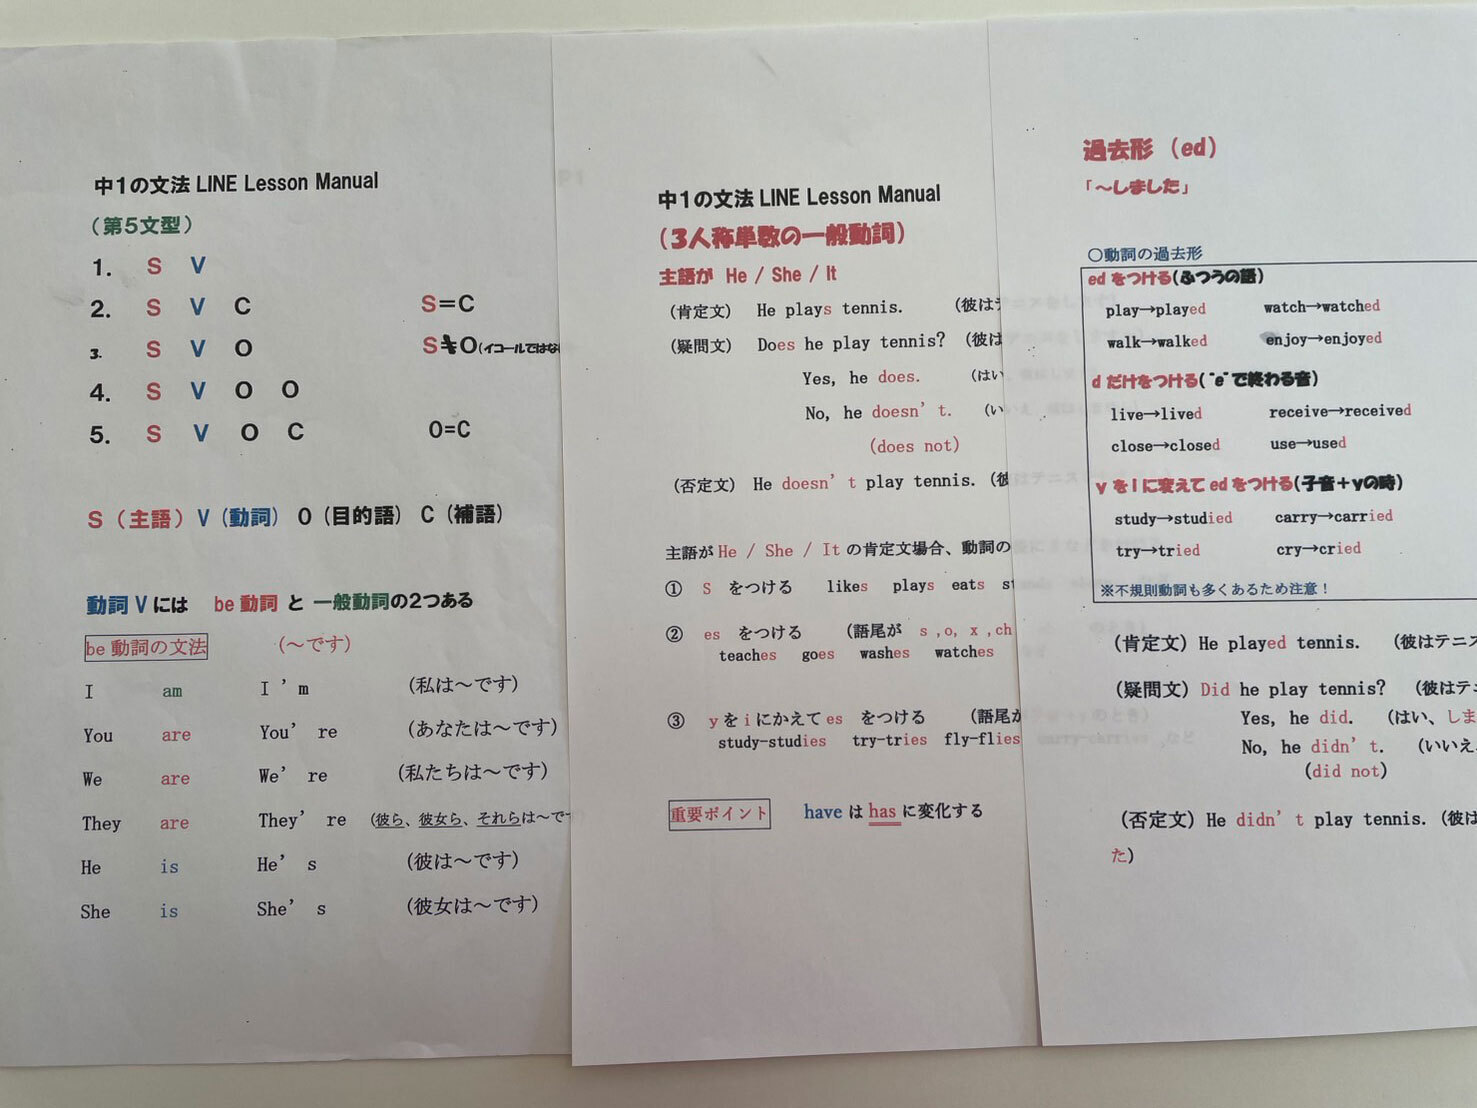 中1の文法 LINE Lesson Manual
（第5文型）
1. S V
2. S V C S=C
3. S V O S≠O(イコールではな
4. S V O O
5. S V O C O=C
S（主語）V（動詞）O（目的語）C（補語）
動詞Vには be動詞 と 一般動詞の2つある
be動詞の文法 (～です)
I am I'm (私は～です)
You are You're (あなたは～です)
We are We're (私たちは～です)
They are They're (彼ら、彼女ら、それらは～で
He is He's (彼は～です)
She is She's (彼女は～です)
中1の文法 LINE Lesson Manual
（3人称単数の一般動詞）
主語が He / She / It
(肯定文) He plays tennis. (彼は
(疑問文) Does he play tennis? (彼は
Yes, he does. (はい
No, he doesn't. (い
(does not)
(否定文) He doesn't play tennis. (彼
主語が He / She / It の肯定文場合、動詞の
① S をつける likes plays eats
② es をつける (語尾が s ,o, x ,ch
teaches goes washes watches
③ yをiにかえてes をつける (語尾が
study-studies try-tries fly-flies
重要ポイント have は has に変化する
過去形（ed）
「～しました」
○動詞の過去形
edをつける(ふつうの語)
play→played watch→watched
walk→walked enjoy→enjoyed
dだけをつける("e"で終わる音)
live→lived receive→received
close→closed use→used
yをiに変えてedをつける(子音+yの時)
study→studied carry→carried
try→tried cry→cried
※不規則動詞も多くあるため注意！
(肯定文) He played tennis. (彼はテニス
(疑問文) Did he play tennis? (彼はテ
Yes, he did. (はい、しま
No, he didn't. (いいえ
(did not)
(否定文) He didn't play tennis. (彼は
た)